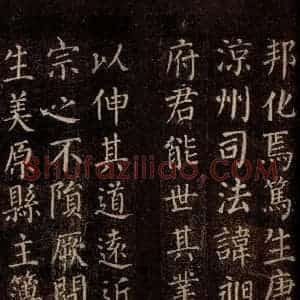 邦化焉篤生唐
涼州司法諱昶
府君能世其業
以伸其道遠近
宗之不隕厥問
生美原縣主簿
Shufaziliao.com